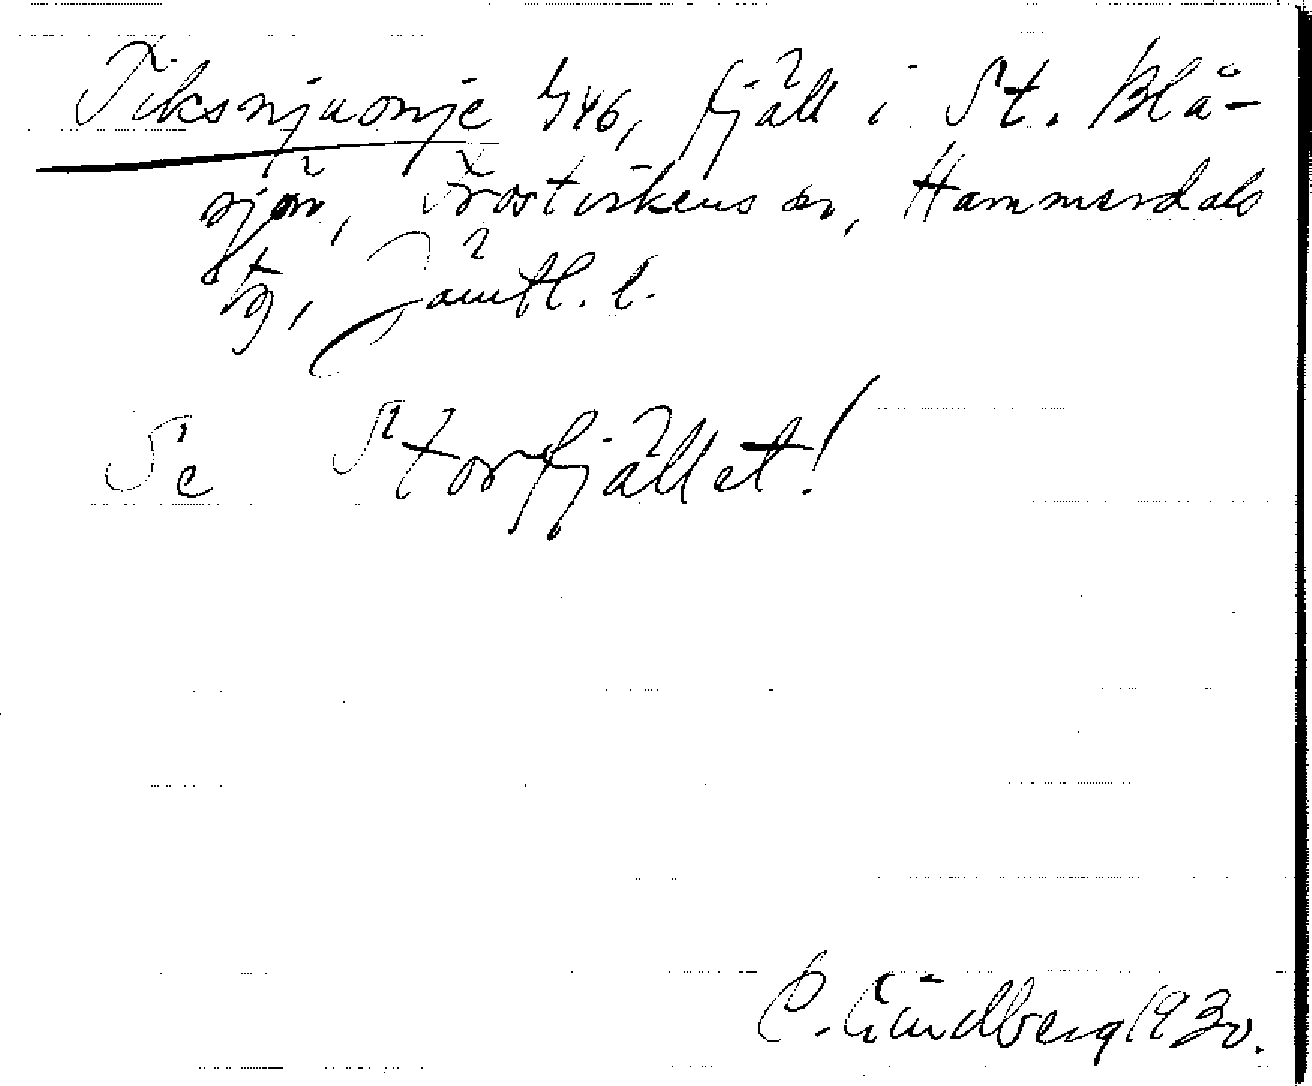 Tiksnjuonje 446, fjäll i St. Blå-
sjön, Frostvikens sn, Hammerdals
tg, Jämtl. l.
Se Storfjället!
C. Lindberg 1930.